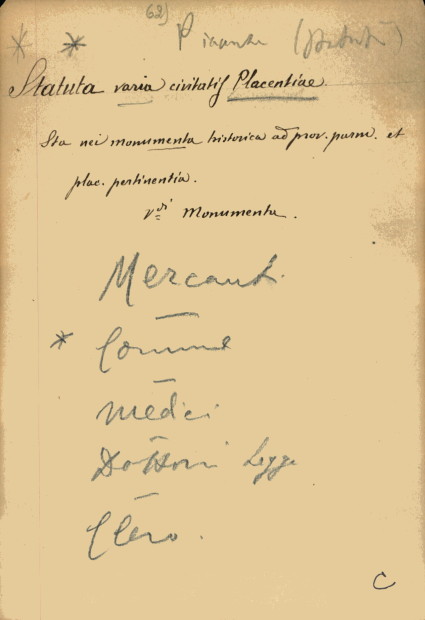 62)
Piacenza (statuti)
Statuta varia civitatis Placentiae.
Sta nei monumenta historica ad prov. parm. et
plac. pertinentia.
V.di Monumenta.
Mercanti.
* Comune
Medici
Dottori Legge
Clero.
C